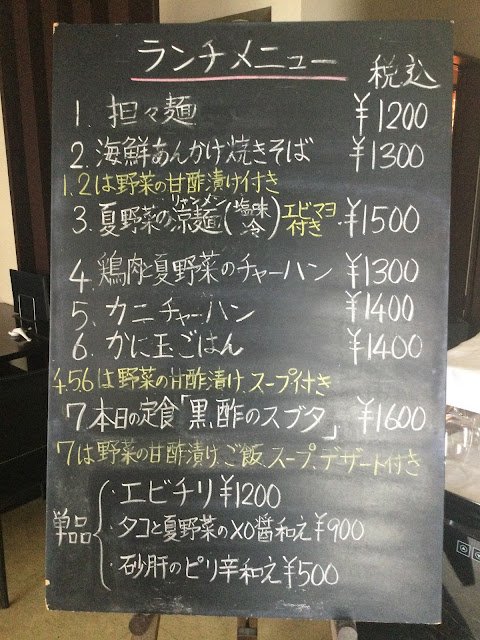 ランチメニュー 税込
1. 担々麺 ¥1200
2. 海鮮あんかけ焼きそば ¥1300
1.2は野菜の甘酢漬け付き
3. 夏野菜の涼麺(リャンメン)(塩味 冷) エビマヨ付き ¥1500
4. 鶏肉と夏野菜のチャーハン ¥1300
5. カニチャーハン ¥1400
6. かに玉ごはん ¥1400
4.5.6は野菜の甘酢漬け、スープ付き
7 本日の定食「黒酢のスブタ」 ¥1600
7は野菜の甘酢漬け、ご飯、スープ、デザート付き
単品
・エビチリ ¥1200
・タコと夏野菜のXO醤和え ¥900
・砂肝のピリ辛和え ¥500